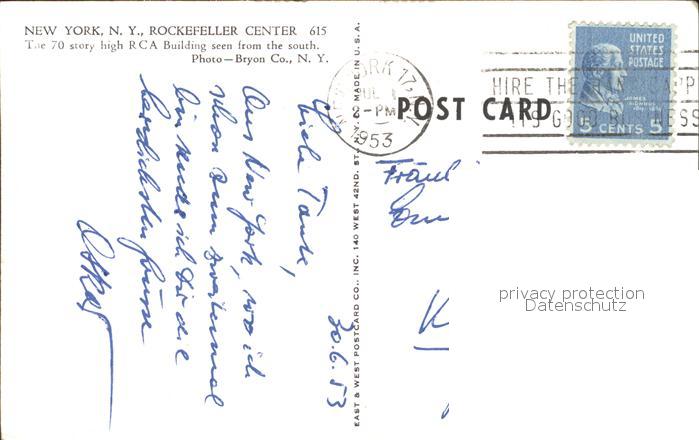 NEW YORK, N. Y., ROCKEFELLER CENTER 615
The 70 story high RCA Building seen from the south.
Photo—Bryon Co., N. Y.
30.6.53
Liebe Tante,
Aus New York, wo ich
schon zum zweitenmal
bin sende ich Dir die
herzlichsten Grüsse
Oskar
EAST & WEST POSTCARD CO., INC. 140 WEST 42ND. ST., N.Y. CO MADE IN U.S.A.
YORK 17
PM
1953
POST CARD
HIRE THE
BUSINESS
UNITED
STATES
POSTAGE
JAMES
MONROE
5 CENTS 5
Fräul
Em
K
privacy protection
Datenschutz